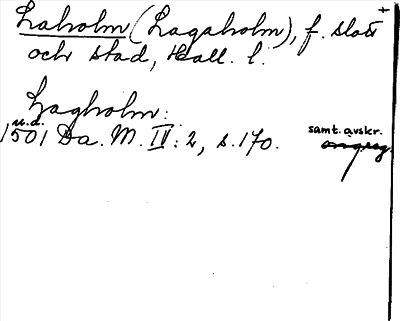 Laholm (Lagaholm), f. slott
och stad, Hall. l.
Lagholm:
u.d.
1501 Da. M. IV: 2, s. 170.
samt. avskr.